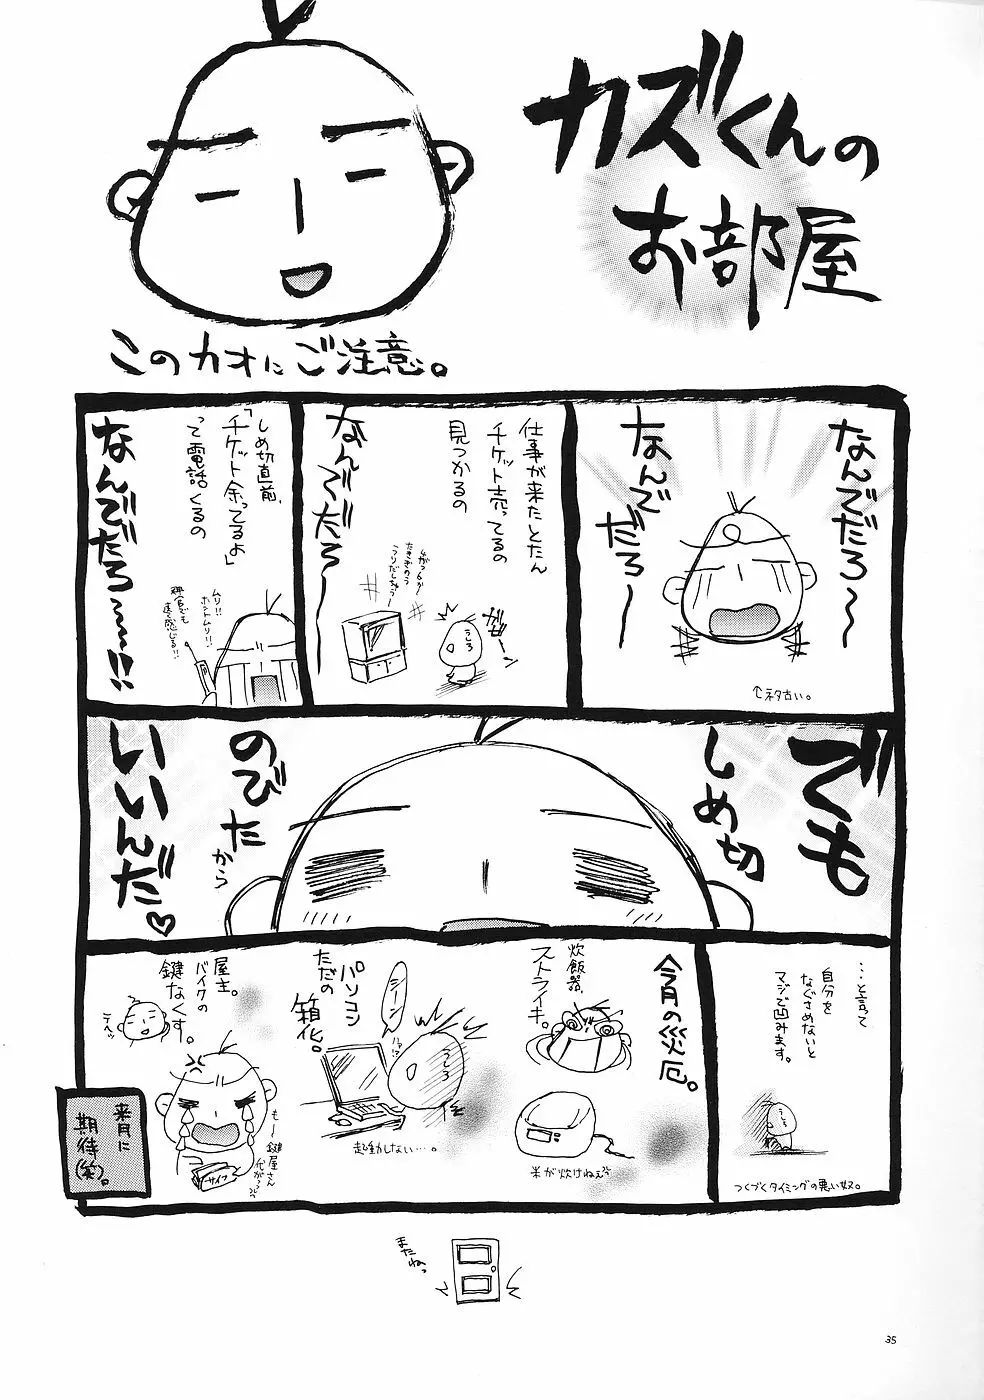 カズくんの
お部屋
このカオにご注意。
なんでだろ〜
なんで
だろ〜
↑ネタ古い。
仕事が来たとたん
チケット売ってるの
見つかるの
なんでだろ〜
うしろ
しめ切直前、
「チケット余ってるよ」
って電話くるの
なんでだろ〜〜!!
ムリ!!
ホントムリ!!
でも
しめ切
のびた
から
いいんだ♡
…と言って
自分を
なぐさめないと
マジで凹みます。
つくづくタイミングの悪い奴。
今月の災厄。
炊飯器、
ストライキ。
米が炊けねぇ
パソコン
ただの
箱化。
シーン
うしろ
起動しない…。
屋主。
バイクの
鍵なくす。
も〜鍵屋さん
サイフ
来月に
期待(笑)。
またねっ
35